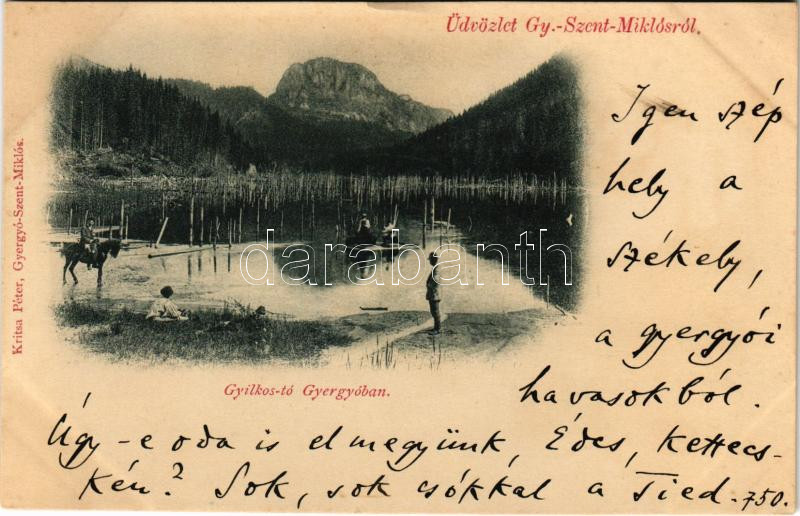 Üdvözlet Gy.-Szent-Miklósról.
Igen szép
hely a
székely,
a gyergyói
havasokból.
Kritsa Péter, Gyergyó-Szent-Miklós.
darabanth
Gyilkos-tó Gyergyóban.
Úgy-e oda is elmegyünk, Édes, kettecs-
kén? Sok, sok csókkal a Tied. 750.